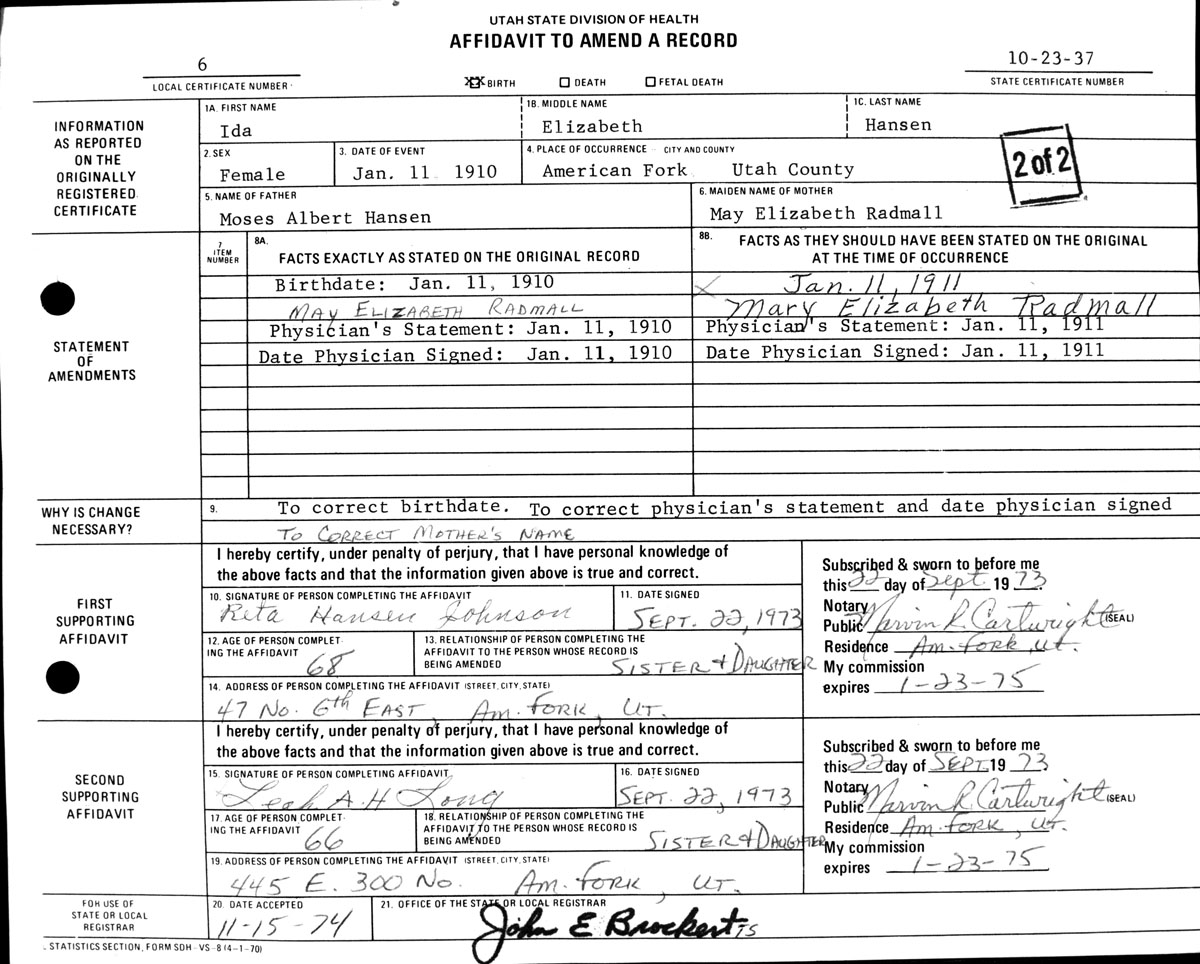 UTAH STATE DIVISION OF HEALTH
AFFIDAVIT TO AMEND A RECORD
6
LOCAL CERTIFICATE NUMBER
XX BIRTH DEATH FETAL DEATH
10-23-37
STATE CERTIFICATE NUMBER
INFORMATION
AS REPORTED
ON THE
ORIGINALLY
REGISTERED
CERTIFICATE
1A. FIRST NAME
Ida
1B. MIDDLE NAME
Elizabeth
1C. LAST NAME
Hansen
2. SEX
Female
3. DATE OF EVENT
Jan. 11 1910
4. PLACE OF OCCURRENCE - CITY AND COUNTY
American Fork Utah County
2 of 2
5. NAME OF FATHER
Moses Albert Hansen
6. MAIDEN NAME OF MOTHER
May Elizabeth Radmall
STATEMENT
OF
AMENDMENTS
7
ITEM
NUMBER
8A.
FACTS EXACTLY AS STATED ON THE ORIGINAL RECORD
8B. FACTS AS THEY SHOULD HAVE BEEN STATED ON THE ORIGINAL
AT THE TIME OF OCCURRENCE
Birthdate: Jan. 11, 1910
X Jan. 11, 1911
MAY ELIZABETH RADMALL
Mary Elizabeth Radmall
Physician's Statement: Jan. 11, 1910
Physician's Statement: Jan. 11, 1911
Date Physician Signed: Jan. 11, 1910
Date Physician Signed: Jan. 11, 1911
WHY IS CHANGE
NECESSARY?
9. To correct birthdate. To correct physician's statement and date physician signed
TO CORRECT MOTHER'S NAME
FIRST
SUPPORTING
AFFIDAVIT
I hereby certify, under penalty of perjury, that I have personal knowledge of
the above facts and that the information given above is true and correct.
10. SIGNATURE OF PERSON COMPLETING THE AFFIDAVIT
Reta Hansen Johnson
11. DATE SIGNED
SEPT. 22, 1973
12. AGE OF PERSON COMPLET-
ING THE AFFIDAVIT
68
13. RELATIONSHIP OF PERSON COMPLETING THE
AFFIDAVIT TO THE PERSON WHOSE RECORD IS
BEING AMENDED
SISTER & DAUGHTER
14. ADDRESS OF PERSON COMPLETING THE AFFIDAVIT (STREET, CITY, STATE)
47 No. 6th EAST, AM. FORK, UT.
Subscribed & sworn to before me
this 22 day of Sept 19 73
Notary
Public Marvin R. Cartwright (SEAL)
Residence Am. Fork, Ut.
My commission
expires 1-23-75
SECOND
SUPPORTING
AFFIDAVIT
I hereby certify, under penalty of perjury, that I have personal knowledge of
the above facts and that the information given above is true and correct.
15. SIGNATURE OF PERSON COMPLETING AFFIDAVIT
Leah A. H Long
16. DATE SIGNED
SEPT. 22, 1973
17. AGE OF PERSON COMPLET-
ING THE AFFIDAVIT
66
18. RELATIONSHIP OF PERSON COMPLETING THE
AFFIDAVIT TO THE PERSON WHOSE RECORD IS
BEING AMENDED
SISTER & DAUGHTER
19. ADDRESS OF PERSON COMPLETING THE AFFIDAVIT (STREET, CITY, STATE)
445 E. 300 No. AM. FORK, UT.
Subscribed & sworn to before me
this 22 day of SEPT. 19 73
Notary
Public Marvin R. Cartwright (SEAL)
Residence Am. Fork, UT.
My commission
expires 1-23-75
FOR USE OF
STATE OR LOCAL
REGISTRAR
20. DATE ACCEPTED
11-15-74
21. OFFICE OF THE STATE OR LOCAL REGISTRAR
John E Brockert TS
STATISTICS SECTION, FORM SDH - VS - 8 (4-1-70)